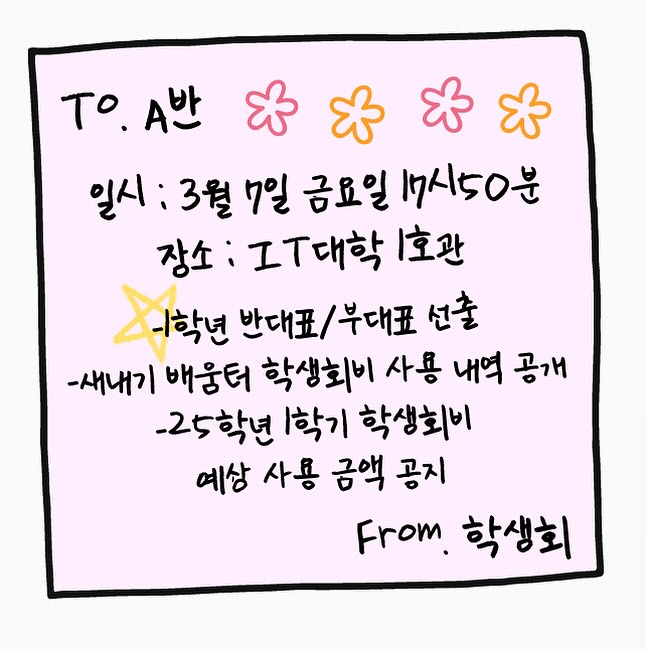 TO. A반
일시 : 3월 7일 금요일 17시50분
장소 : IT대학 1호관
-1학년 반대표/부대표 선출
-새내기 배움터 학생회비 사용 내역 공개
-25학년 1학기 학생회비
예상 사용 금액 공지
From. 학생회